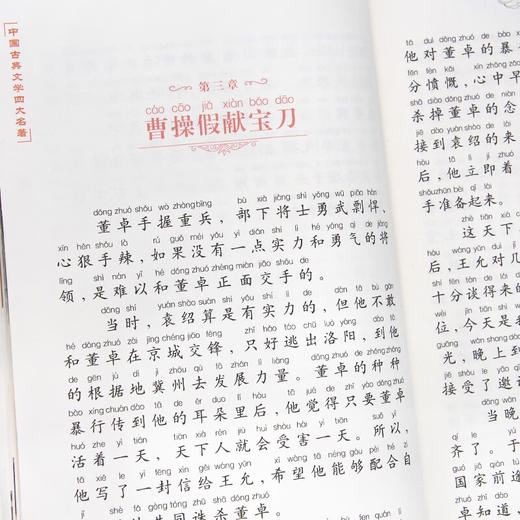 中国古典文学四大名著
第三章
cáo cāo jiǎ xiàn bǎo dāo
曹操假献宝刀
dǒng zhuó shǒu wò zhòng bīng bù xià jiàng shì yǒng wǔ piāo hàn
董卓手握重兵，部下将士勇武剽悍，
xīn hěn shǒu là rú guǒ méi yǒu yì diǎn shí lì hé yǒng qì de jiàng
心狠手辣，如果没有一点实力和勇气的将
lǐng shì nán yǐ hé dǒng zhuó zhèng miàn jiāo shǒu de
领，是难以和董卓正面交手的。
dāng shí yuán shào suàn shì yǒu shí lì de dàn tā bù gǎn
当时，袁绍算是有实力的，但他不敢
hé dǒng zhuó zài jīng chéng jiāo fēng zhǐ hǎo táo chū luò yáng dào tā
和董卓在京城交锋，只好逃出洛阳，到他
de gēn jù dì jì zhōu qù fā zhǎn lì liàng dǒng zhuó de zhǒng zhǒng
的根据地冀州去发展力量。董卓的种种
bào xíng chuán dào tā de ěr duo lǐ hòu tā jué de zhǐ yào dǒng zhuó
暴行传到他的耳朵里后，他觉得只要董卓
huó zhe yì tiān tiān xià rén jiù huì shòu hài yì tiān suǒ yǐ
活着一天，天下人就会受害一天。所以，
tā xiě le yì fēng xìn gěi wáng yǔn xī wàng tā néng gòu pèi hé zì
他写了一封信给王允，希望他能够配合自
共同诛杀董卓。
他对董卓的暴
分愤慨，心中早
杀掉董卓的念
接到袁绍的来
后，他立即着
手准备起来。
这天下
后，王允对几
十分谈得来的
位，今天是我
光，晚上到
接受了邀
当晚
齐了。于
国家前途
卓知道，